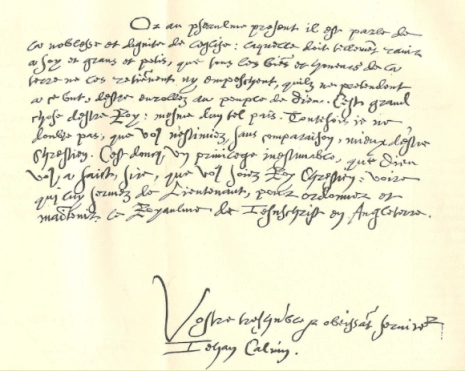 Or au pseaulme present il est parle de
la noblesse et dignite de leglise: laquelle doit tellement ravir
a soy et grans et petis, que tous les biens et honeurs de la
terre ne les retienent ny empeschent, quilz ne pretendent
a ce but, destre enrollez au peuple de dieu. Cest grand
chose destre Roy: mesme dun tel pais. Toutefois ie ne
doubte pas, que vous nestimiez, sans comparaison, mieux destre
Chrestien. Cest donq un privilege inestimable, que dieu
vous a faict, sire, que vous soiez Roy Chrestien: voire
qui luy servez de Lieutenant, pour ordonner et
maintenir le Royaulme de Iesuschrist en Angleterre.
Vostre treshumble et obeissāt serviteur
Iehan Calvin.